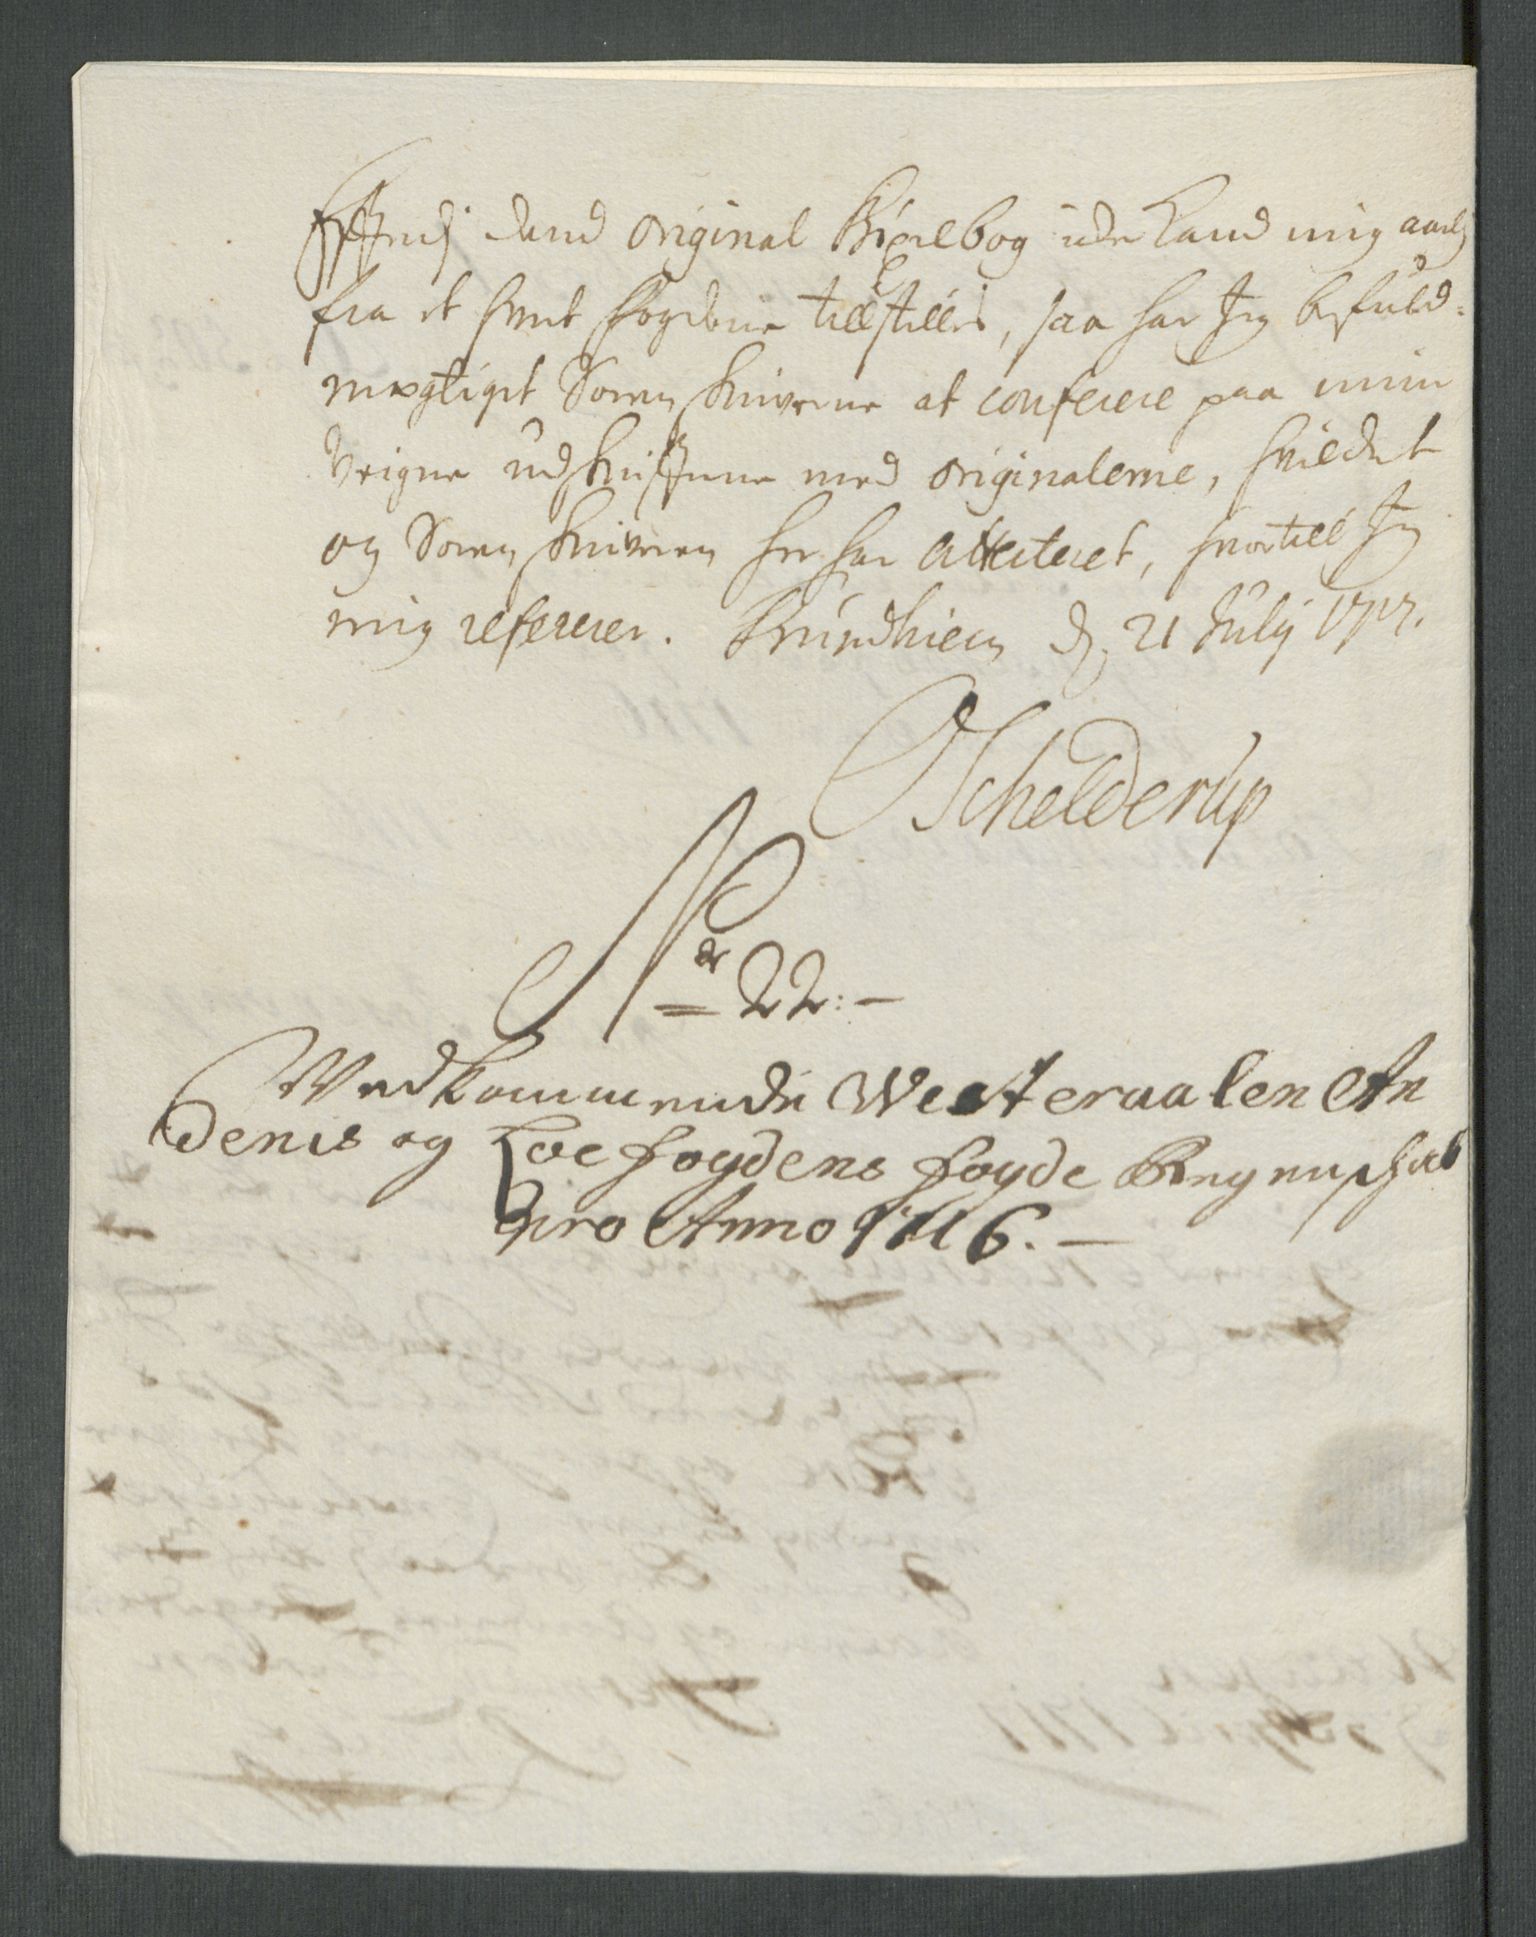 Efftersom dend original Bÿxelbog icke kand mig aarlig
fra et hvert fogderie tillstilles, saa har Jeg befuld-
mægtiget Sorenskriverne at conferere paa mine
Veigne udskrifterne med originalerne, hvilcket
og Sorenskriveren her har attesteret, hvortill Jeg
mig refererer. Trundhiem d. 21 Julÿ 1717.
Schelderup
Nr 22:-
Vedkommende Westeraalen An
denis og Loefogdens fogde Regnschab
pro Anno 1716.-